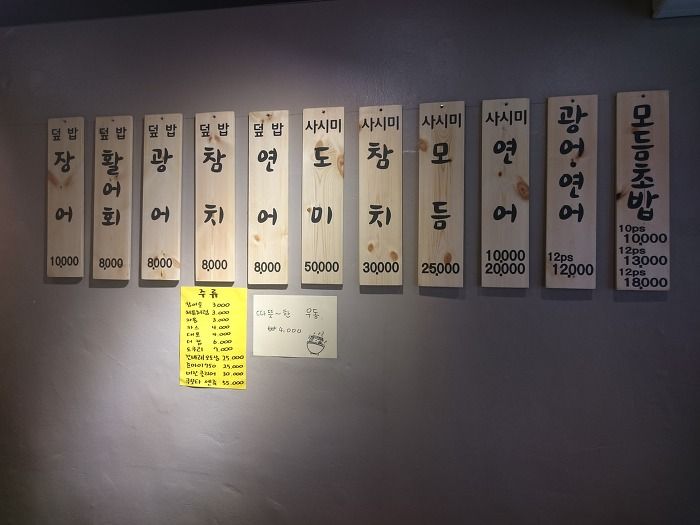 덮밥
장
어
10,000
덮밥
활
어
회
8,000
덮밥
광
어
8,000
덮밥
참
치
8,000
덮밥
연
어
8,000
사시미
도
미
50,000
사시미
참
치
30,000
사시미
모
듬
25,000
사시미
연
어
10,000
20,000
광
어
연
어
12ps
12,000
모
듬
초
밥
10ps
10,000
12ps
13,000
12ps
18,000
주류
참이슬 3.000
처음처럼 3.000
3.000
카스 4.000
4.000
6.000
7.000
25.000
25.000
30.000
55.000
따뜻~한 우동
4.000